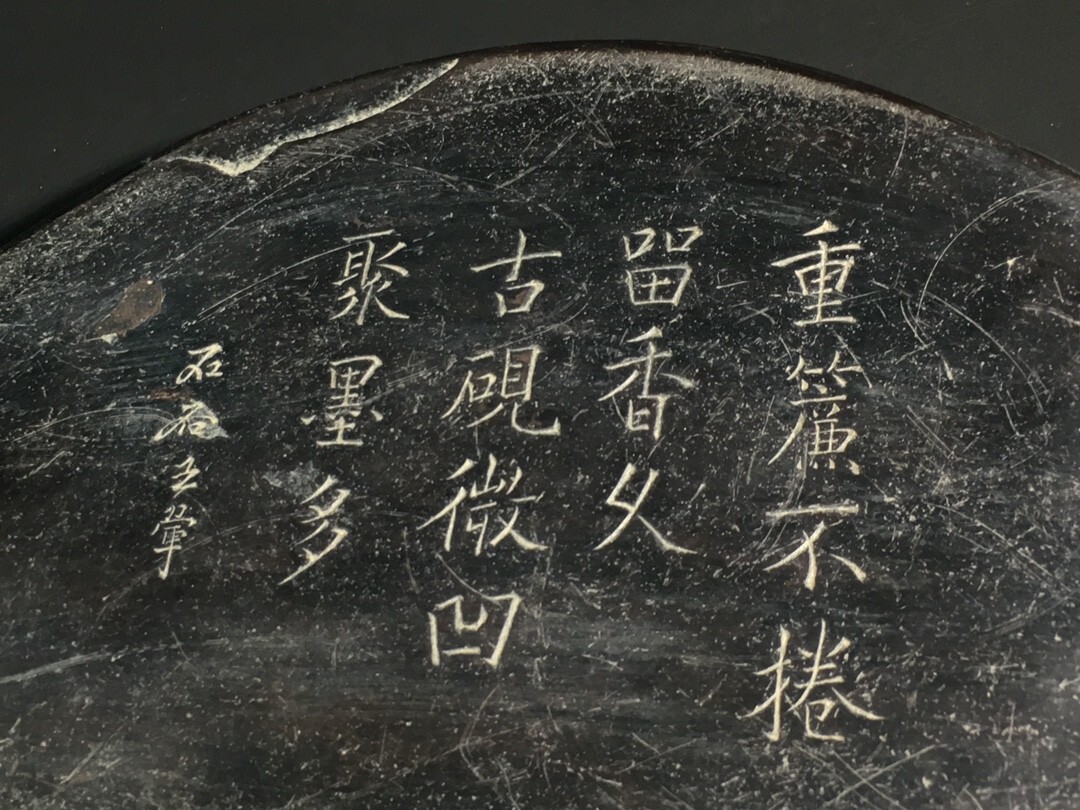 重簾不捲
留香久
古硯微凹
聚墨多
石